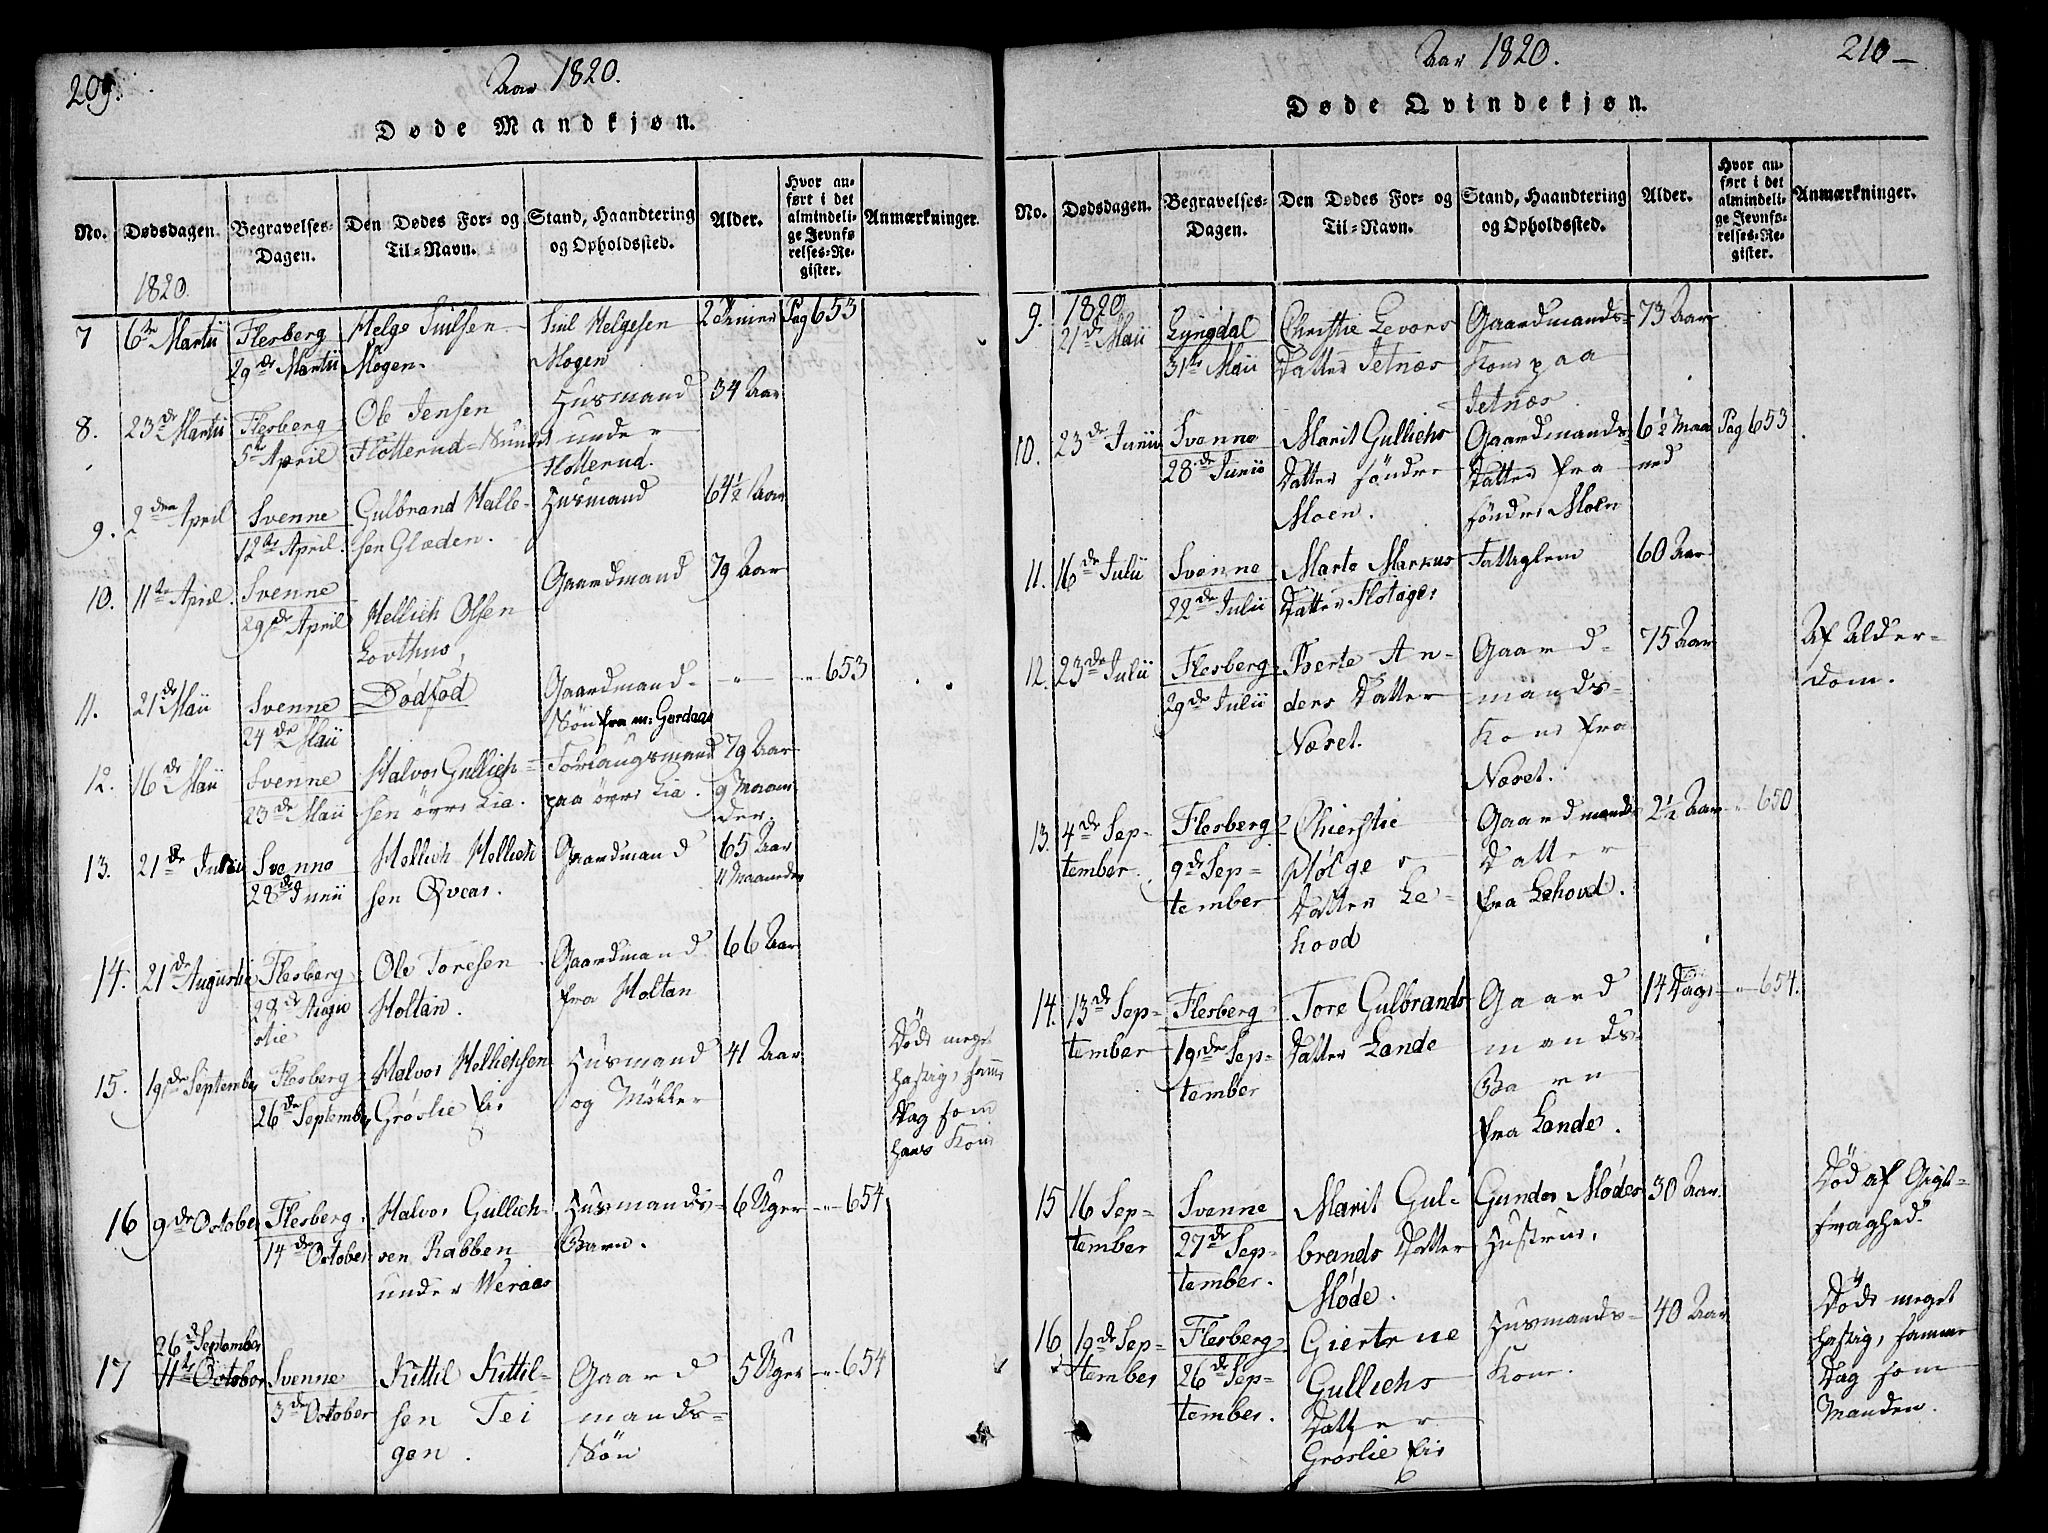 209.
Aar 1820.
Døde Mandkjøn.
No.
Dødsdagen.
Begravelses-
Dagen.
Den Dødes For- og
Til-Navn.
Stand, Haandtering
og Opholdssted.
Alder.
Hvor an-
ført i det
almindeli-
ge Jevnfø
relses-Re-
gister.
Anmærkninger.
1820.
7
6te Martii
Flesberg
29de Martii
Helge
Mogen.
Helgesen
Mogen
2 Timer
Pag 653
8.
23de Martii
Flesberg
5te April
Ole Jensen
Flotterud-
Husmand
under
Flotterud.
34 Aar
9.
2den April
Svenne
12te April.
Gulbrand Halle-
sen Gladen.
Husmand
64½ Aar
10.
11te April.
Svenne
29de April
Hellich Olsen
Lovthus,
Gaardmand
79 Aar
11.
21de Maii
Svenne
24de Maii
Dödfød
Gaardmand-
Sön fra m: Gordaas
-"-
" 653
12.
16de Maii
Svenne
23de Maii
Halvor Gullich-
sen övre Lia.
Forlaugsmand
paa övre Lia.
79 Aar
9 Maane
der.
13.
21de
Svenno
28de Junii
Hellich Hellich
sen Qveas.
Gaardmand
65 Aar
11 Maaneder
14.
21de Augustie
Flesberg
28de Augu
stie
Ole Toresen
Holtan.
Gaardmand
fra Holtan
66 Aar
15.
19de September
Flesberg
26de September
Halvor Hellichsen
Gröslie Eie
Husmand
og Möller
41 Aar
Döde meget
hastig, samme
Dag som
hans Kone
16
9de October
Flesberg
14de October
Halvor Gullich-
sen Rabben
under Weraas
Husmands-
Barn.
6 Uger
-"-654
17
26de September
11te October
Svenne
3de October
Kittil Kittil-
sen Tei
gen.
Gaard
mands-
Sön
5 Uger
-"-654
Aar 1820.
210-
Døde Qvindekjøn.
No.
Dødsdagen.
Begravelses-
Dagen.
Den Dødes For- og
Til-Navn.
Stand, Haandtering
og Opholdssted.
Alder.
Hvor an-
ført i det
almindeli-
ge Jevnfø-
relses-Re-
gister.
Anmærkninger.
9.
1820
21de Maii
Lyngdal
31te Maii
Christie Levors
Datter Jetnæs
Gaardmands-
Kone paa
Jetnæs.
73 Aar
10.
23de Junii
Svenne
28de Junii
Marit Gullichs
Datter söndre
Moen.
Gaardmands-
Datter fra
söndre Moen
6½ Maa
ned
Pag 653
11.
16de Julii
Svenne
22de Julii
Marte Markus
Datter Flotager
Fattiglem
60 Aar
12.
23de Julii
Flesberg
29de Julii
Berte An-
ders Datter
Næset.
Gaard-
mands-
Kone fra
Næset.
75 Aar
Af Alder-
dom.
13.
4de Sep-
tember.
Flesberg
9de Sep-
tember
Chierstie
Hølge
Datter Le-
hovd
Gaardmands
Datter
fra Lehovd.
2½ Aar
" 650
14.
13de Sep-
tember
Flesberg
19de Sep-
tember
Tore Gulbrands
Datter Lande
Gaard
mands-
Barn
fra Lande.
14 Dage
" 654.
15
16 Sep-
tember
Svenne
27de Sep-
tember.
Marit Gul-
brands Datter
Møde.
Gunder Mødes
Hustrue.
30 Aar.
Död af Gigt-
svaghed.
16
19de Sep-
tember
Flesberg
26de Sep-
tember.
Giertrue
Gullichs
Datter
Gröslie Eie
Husmands-
Kone.
40 Aar
Döde meget
hastig, samme
Dag som
Manden.